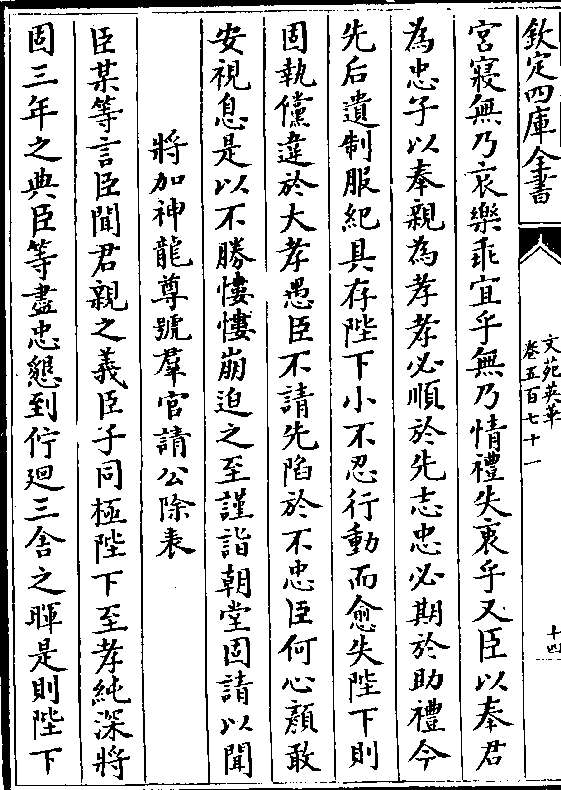 欽定四庫全書
文苑英華
卷五百七十一
十四
宮寢無乃哀樂乖宜乎無乃情禮失衷乎又臣以奉君
為忠子以奉親為孝孝必順於先志忠必期於助禮今
先后遺制服紀具存陛下小不忍行動而愈失陛下則
固執儻違於大孝愚臣不請先陷於不忠臣何心顏敢
安視息是以不勝悽悽崩迫之至謹詣朝堂固請以聞
將加神龍尊號羣官請公除表
臣某等言臣聞君親之義臣子同極陛下至孝純深將
固三年之典臣等盡忠懇到佇迴三舍之暉是則陛下